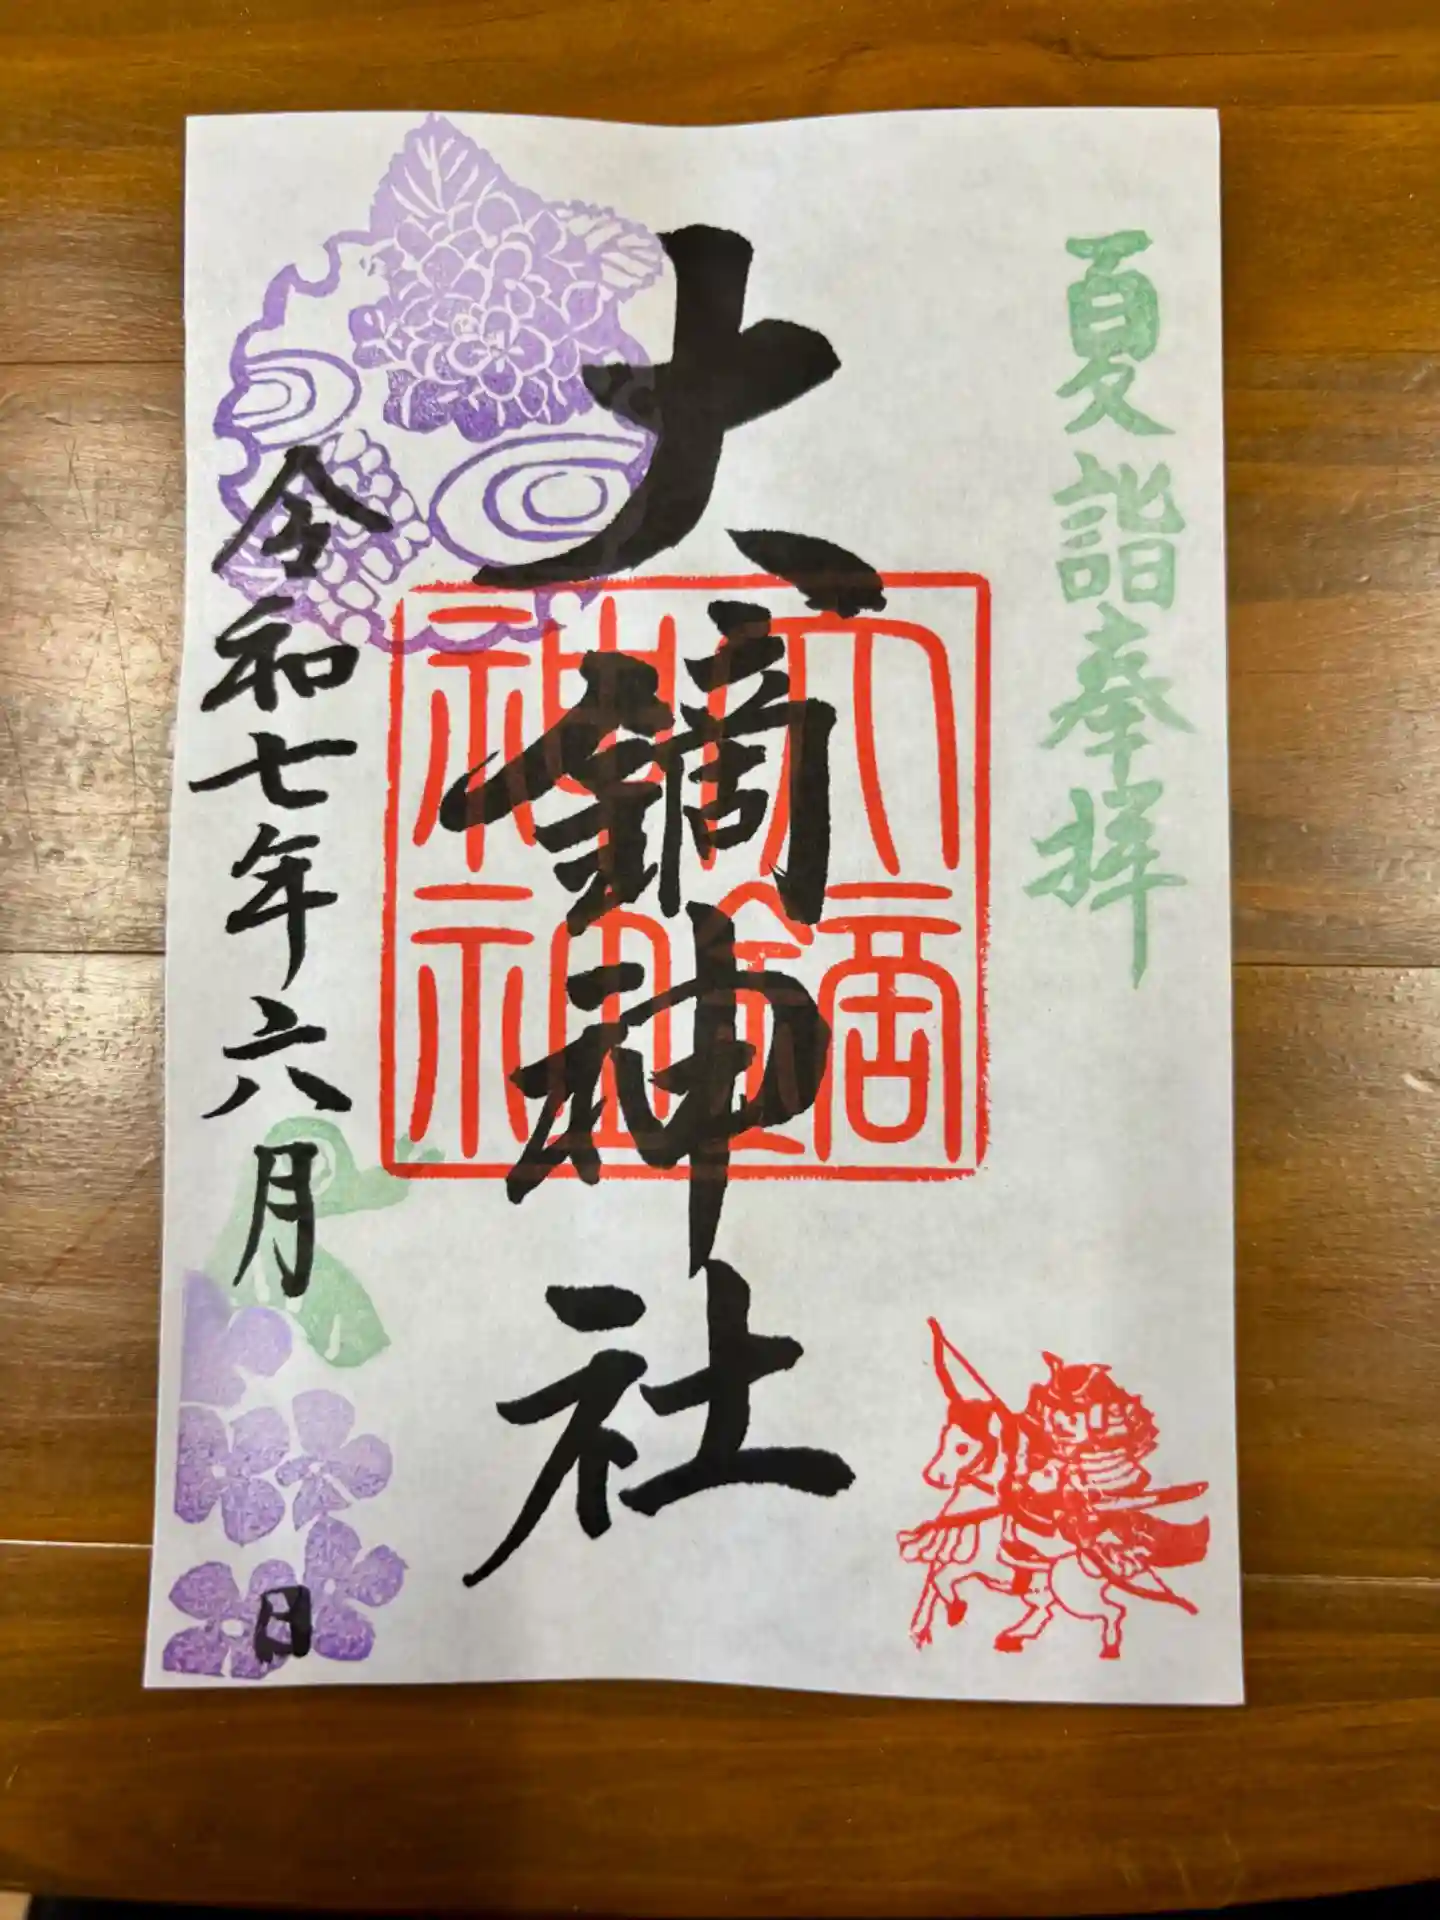 夏詣奉拝
大鏑神社
大鏑神社神社
令和七年六月　日